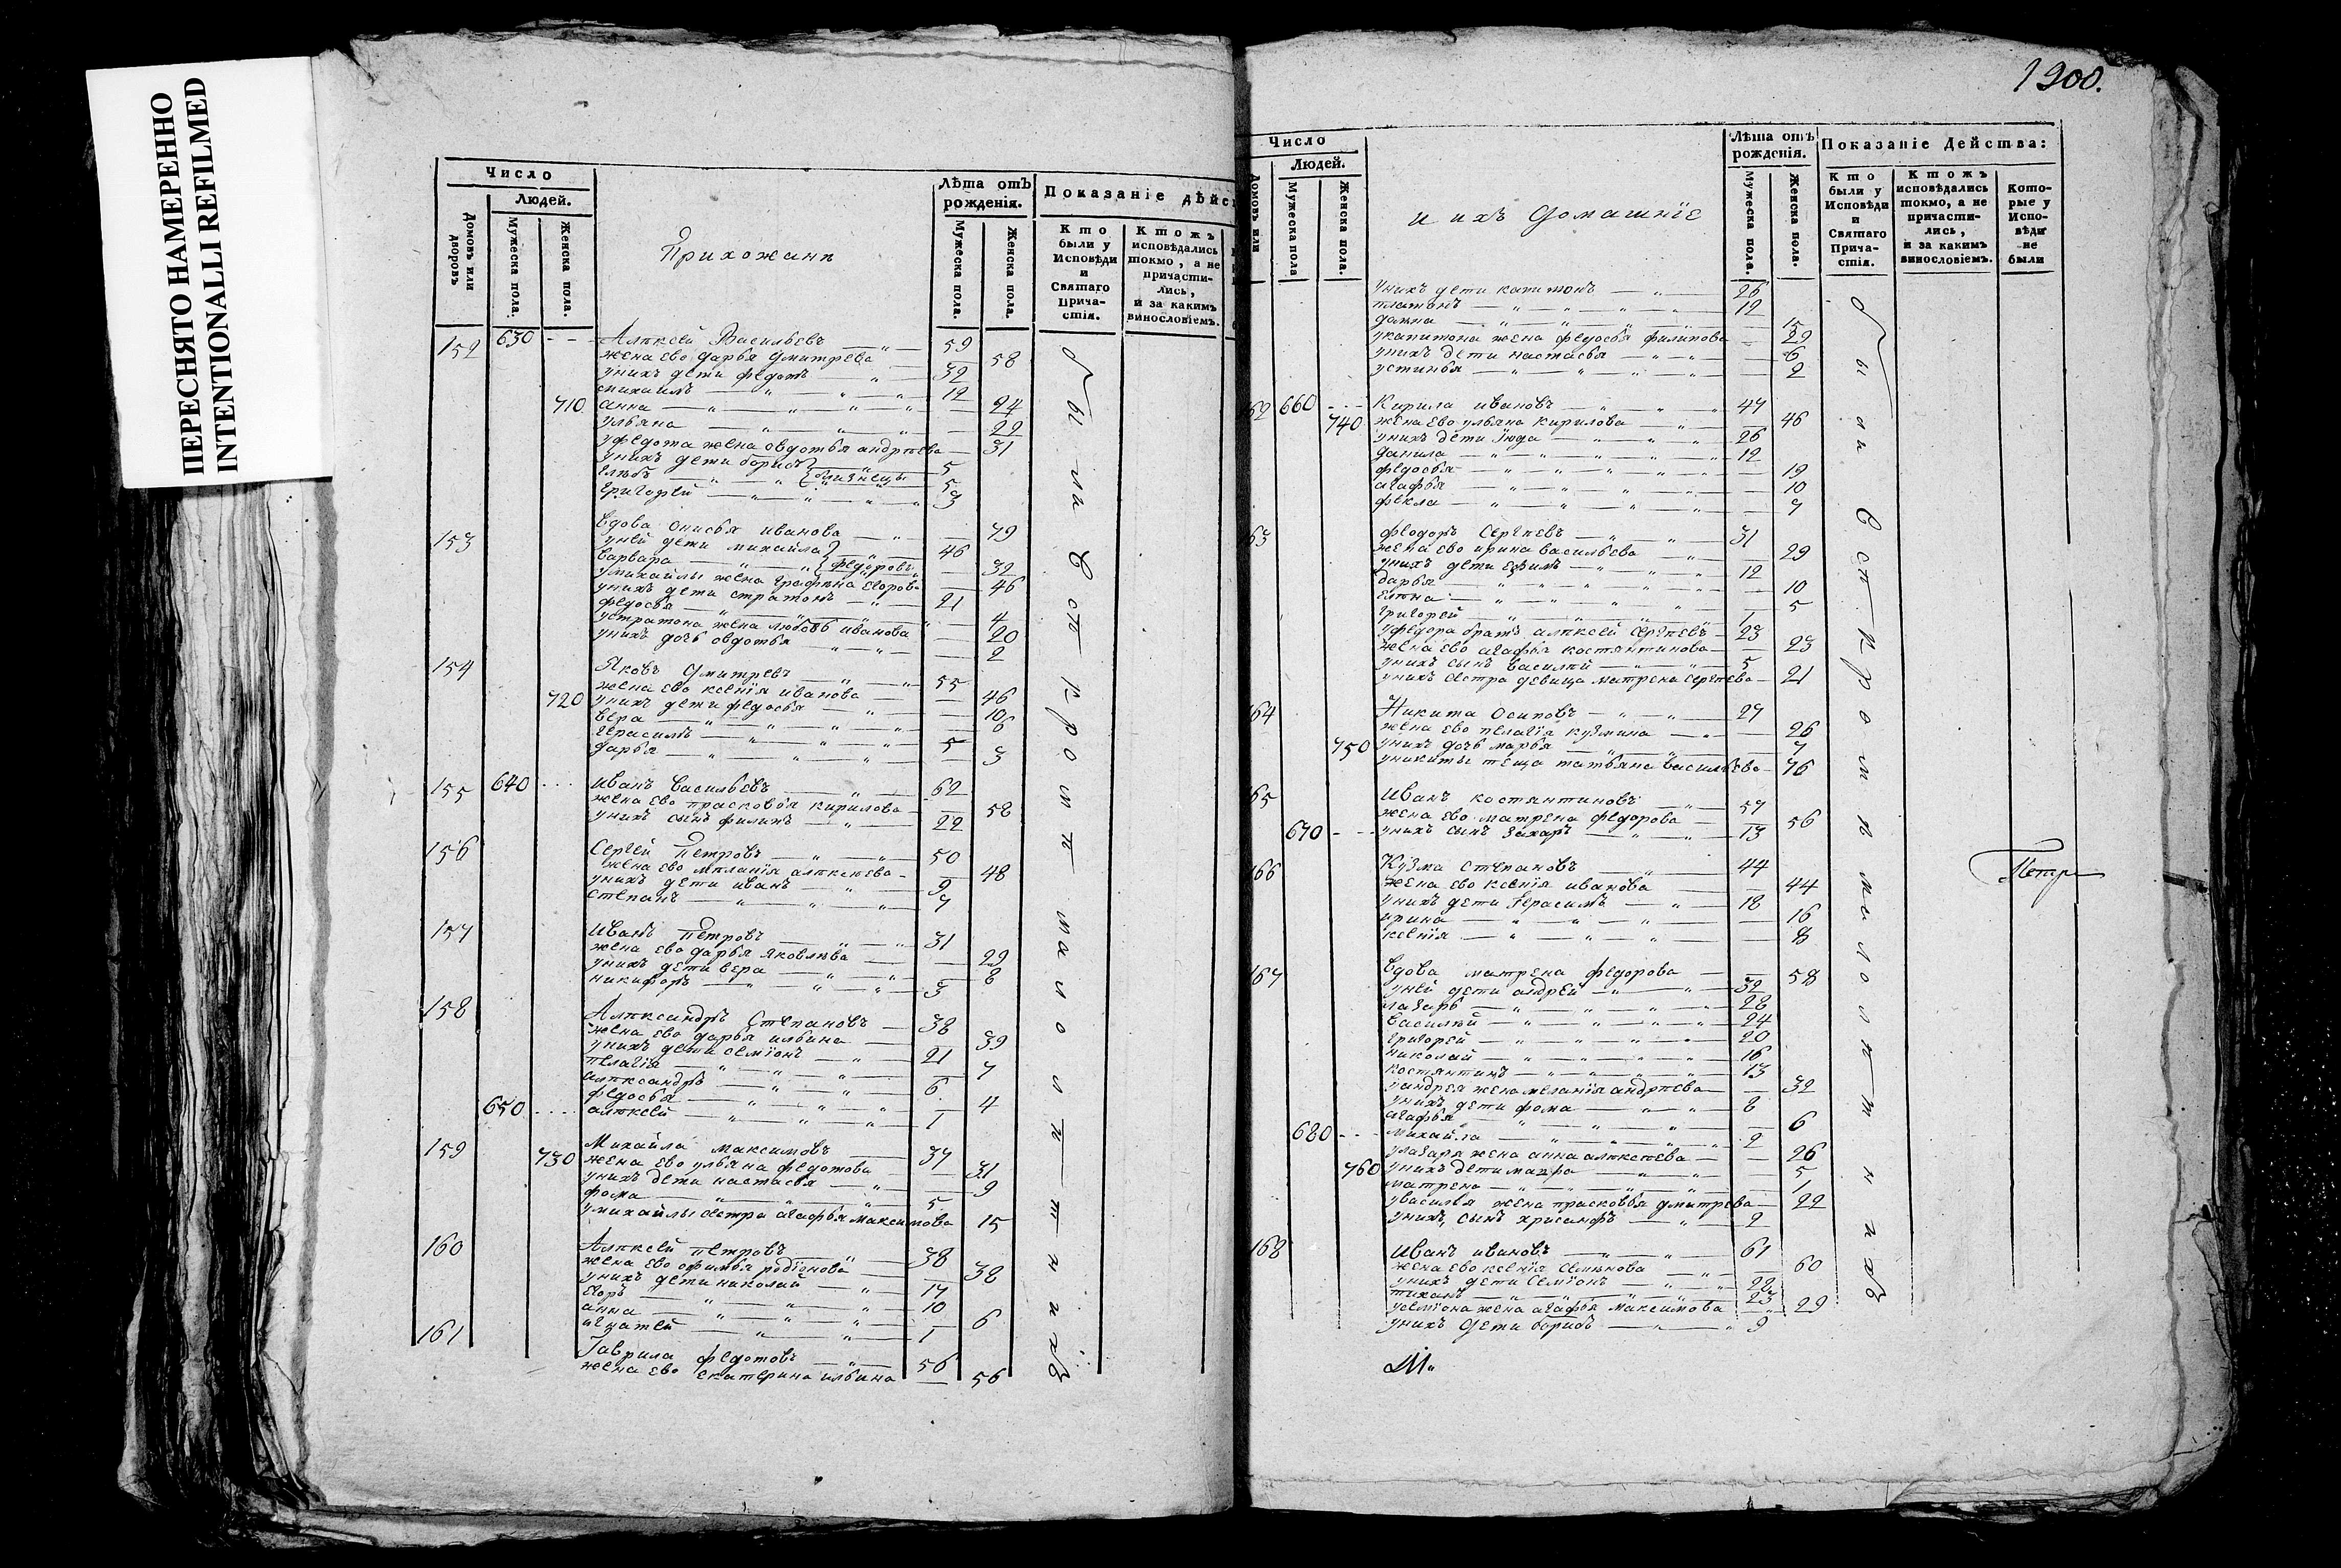 ПЕРЕСНЯТО НАМЕРЕННО
INTENTIONALLI REFILMED
Число
Людей.
Домовъ или дворовъ
Мужеска пола.
Женска пола.
Прихожанѣ
Лѣта отъ рожденія.
Мужеска пола.
Женска пола.
Показаніе дѣйс
Кто были у Исповѣди и Святаго Причастія.
Ктожъ исповѣдались токмо, а не причастились, и за какимъ винословіемъ.
152 630 Алѣксѣй Васильевъ 59
жена ево дарья дмитрева 58
унихъ дети федотъ 32
михаилъ 12
710 анна 24
ульяна 22
уфедота жена овдотья андрѣева 31
унихъ дети борисъ близнецы 5
глѣбъ 5
григорей 3
153 вдова онисья иванова 79
уней дети михайла федоровы 46
варвара 32
умихайлы жена графѣна егорова 46
унихъ дети стратонъ 21
федосья 4
устратона жена любовь иванова 20
унихъ дочь овдотья 2
154 Яковъ дмитревъ 55
жена ево ксенїя иванова 46
720 унихъ дети федосья 10
вера 6
герасимъ 5
дарья 3
155 640 иванъ васильевъ 62
жена ево прасковья кирилова 58
унихъ сынъ филипъ 22
156 Сергей Петровъ 50
жена ево мѣланїя алѣксѣева 48
унихъ дети иванъ 9
степанъ 7
157 иванъ Петровъ 31
жена ево дарья яковлѣва 29
унихъ дети вера 8
никифоръ 3
158 Алѣксандръ Степановъ 38
жена ево дарья ильина 39
унихъ дети семїонъ 21
пелагїя 7
алѣксандръ 6
федосья 4
650 алѣксей 1
159 Михайла максимовъ 37
730 жена ево ульяна федотова 31
унихъ дети настасья 9
фома 5
умихайлы сестра агафья максимова 15
160 Алѣксей петровъ 38
жена ево офимья родїонова 38
унихъ дети николай 17
егоръ 10
анна 6
игнатей 1
161 Гаврила федотовъ 56
жена ево екатерина ильина 56
были
1200.
Число
Людей.
Домовъ или
Мужеска пола
Женска пола.
и ихъ домашнїе
Лѣта отъ рожденія.
Мужеска пола.
Женска пола.
Показаніе Действа:
Кто были у Исповѣди и Святаго Причастія.
Ктожъ исповѣдались токмо, а не причастились, и за какимъ винословіемъ.
Которые у Исповѣди не были
унихъ дети капитонъ 26
платонъ 12
домна 15
укапитона жена федосья филипова 29
унихъ дети настасья 6
устинья 2
62 660 Кирила ивановъ 47
740 жена ево ульяна кирилова 46
унихъ дети їюда 26
данила 12
федосья 19
агафья 10
фекла 7
63 федоръ Сергѣевъ 31
жена ево ирина васильева 29
унихъ дети ефимъ 12
дарья 10
елѣна 5
григорей 1
уфедора братъ алѣксей сергѣевъ 23
жена ево агафья костянтинова 23
унихъ сынъ василѣй 5
унихъ сестра девица матрена сергѣева 21
64 Никита Осиповъ 27
жена ево пелагїя кузмина 26
750 унихъ дочь марья 7
уникиты теща татьяна васильева 76
65 Иванъ костянтиновъ 57
жена ево матрена федорова 56
670 унихъ сынъ захаръ 13
166 Кузма степановъ 44
жена ево ксенїя иванова 44
унихъ дети герасимъ 18
ирина 16
ксенїя 8
167 вдова матрена федорова 58
уней дети андрей 32
лазарь 28
василѣй 24
григорей 20
николай 16
костянтинъ 13
уандрея жена меланїя андрѣева 32
унихъ дети фома 8
агафья 6
680 михайла 2
улазаря жена анна алѣксѣева 26
760 унихъ дети мавра 5
матрена 1
увасилья жена прасковья дмитрева 22
унихъ сынъ хрисанфъ 2
168 Иванъ ивановъ 61
жена ево ксенїя семѣнова 60
унихъ дети семїонъ 28
тихонъ 23
усемїона жена агафья максимова 29
унихъ дети борисъ 9
были
Петр